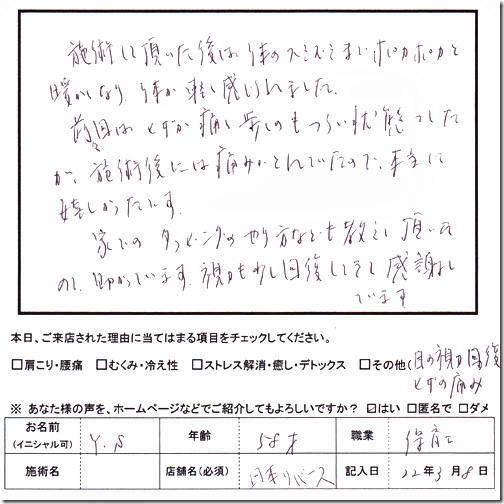 施術して頂いた後は体のスミズミまでポカポカと
暖かくなり 体が軽く感じられました。
前々回はヒザが痛く歩くのもつらい状態でした
が、施術後には痛みがとれていたので、本当に
嬉しかったです。
家でのタッピングのやり方なども教えて頂いた
ので、助かっています。視力も少し回復してきて感謝し
ています
本日、ご来店された理由に当てはまる項目をチェックしてください。
□肩こり・腰痛 □むくみ・冷え性 □ストレス解消・癒し・デトックス □その他(目の視力回復
ヒザの痛み
※ あなた様の声を、ホームページなどでご紹介してもよろしいですか？ ☑はい □匿名で □ダメ
お名前 (イニシャル可) Y.S 年齢 才 職業 保育士
施術名 店舗名(必須) リバース 記入日 22年3月8日